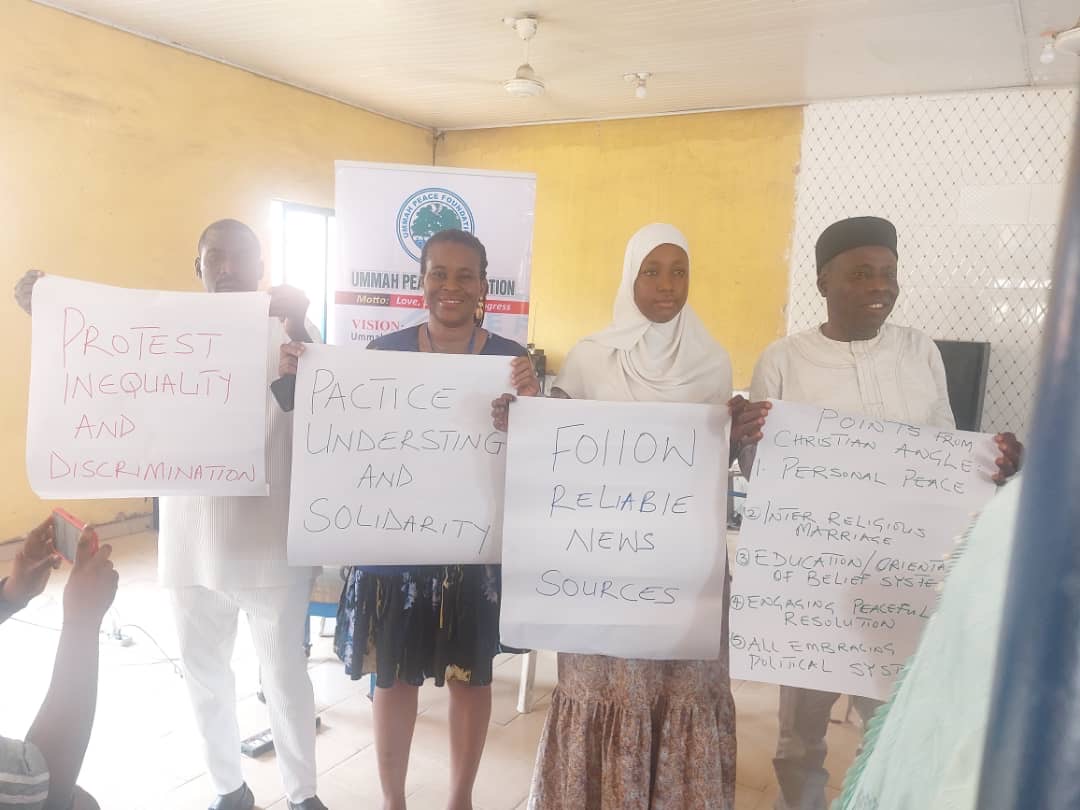 UMMAH PEACE FOUNDATI
UMMAH PEA ATION
Motto: Love, ogress
VISION:
Ummah
PROTEST
INEQUALITY
AND
DISCRIMINATION
PACTICE
UNDERSTING
AND
SOLIDARITY
FOLLOW
RELIABLE
NEWS
SOURCES
POINTS FROM
CHRISTIAN ANGLE
1. PERSONAL PEACE
② INTER RELIGIOUS
MARRIAGE
③ EDUCATION/ORIENTA
OF BELIEF SYSTE
④ ENGAGING PEACEFUL
RESOLUTION
⑤ ALL EMBRACING
POLITICAL SYST